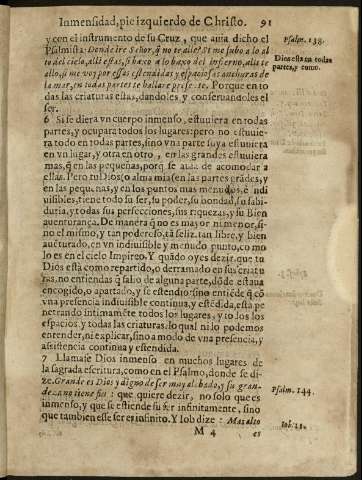 Inmensidad, pie izquierdo de Christo. 91
y con el instrumento de su Cruz, que auia dicho el
Psalmista: Donde ire Señor, q̃ no te alle? Si me subo a lo al
Psalm. 138.
to del cielo, alli estas, si baxo a lo baxo del infierno, alli te
allo, si me voy por essas estendidas y espaciosas anchuras de
Dios està en todas
partes, y como.
la mar, en todas partes te hallare prese te. Porque en to
das las criaturas estas, dandoles y conseruandoles el
ser.
6 Si se diera vn cuerpo inmenso, estuuiera en todas
partes, y ocupara todos los lugares: pero no estuuie-
ra todo en todas partes, sino vna parte suya estuuiera
en vn lugar, y otra en otro, en las grandes estuuiera
mas, q̃ en las pequeñas, porq̃ se auia de acomodar a
ellas. Pero tu Dios (o alma mia) en las partes grãdes, y
en las pequeñas, y en los puntos mas menudos, è indi
uisibles, tiene todo su ser, su poder, su bondad, su sabi-
duria, y todas sus perfecciones, sus riquezas, y su Bien
auenturança. De manera q̃ no es mayor ni menor, si-
no el mismo, y tan poderoso, tã feliz, tan libre, y bien
auẽturado, en vn indiuisible y menudo punto, co mo
lo es en el cielo Impireo. Y quãdo oyes dezir, que tu
Dios està como repartido, o derramado en sus criatu
ras, no entiendas q̃ salio de alguna parte, dõde estaua
encogido, o apartado, y se estendio: sino entiẽde q̃ cõ
vna presencia indiuisible continua, y estẽdida, esta pe
netrando intimamẽte todos los lugares, y to los los
espacios, y todas las criaturas. lo qual ni lo podemos
entender, ni explicar, sino a modo de vna presencia, y
assistencia continua y estendida.
7 Llamase Dios inmenso en muchos lugares de
la sagrada escritura, como en el Psalmo, donde se di-
ze. Grande es Dios y digno de ser muy alabado, y su gran-
deza no tiene fin: que quiere dezir, no solo que es
Psalm. 144.
inmenso, y que se estiende su ser infinitamente, sino
que tambien esse ser es infinito. Y Iob dize: Mas alto
Iob. 11.
M 4 es